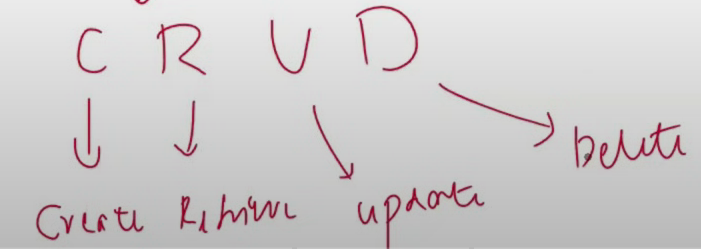 C R U D
Create Retrieve update Delete